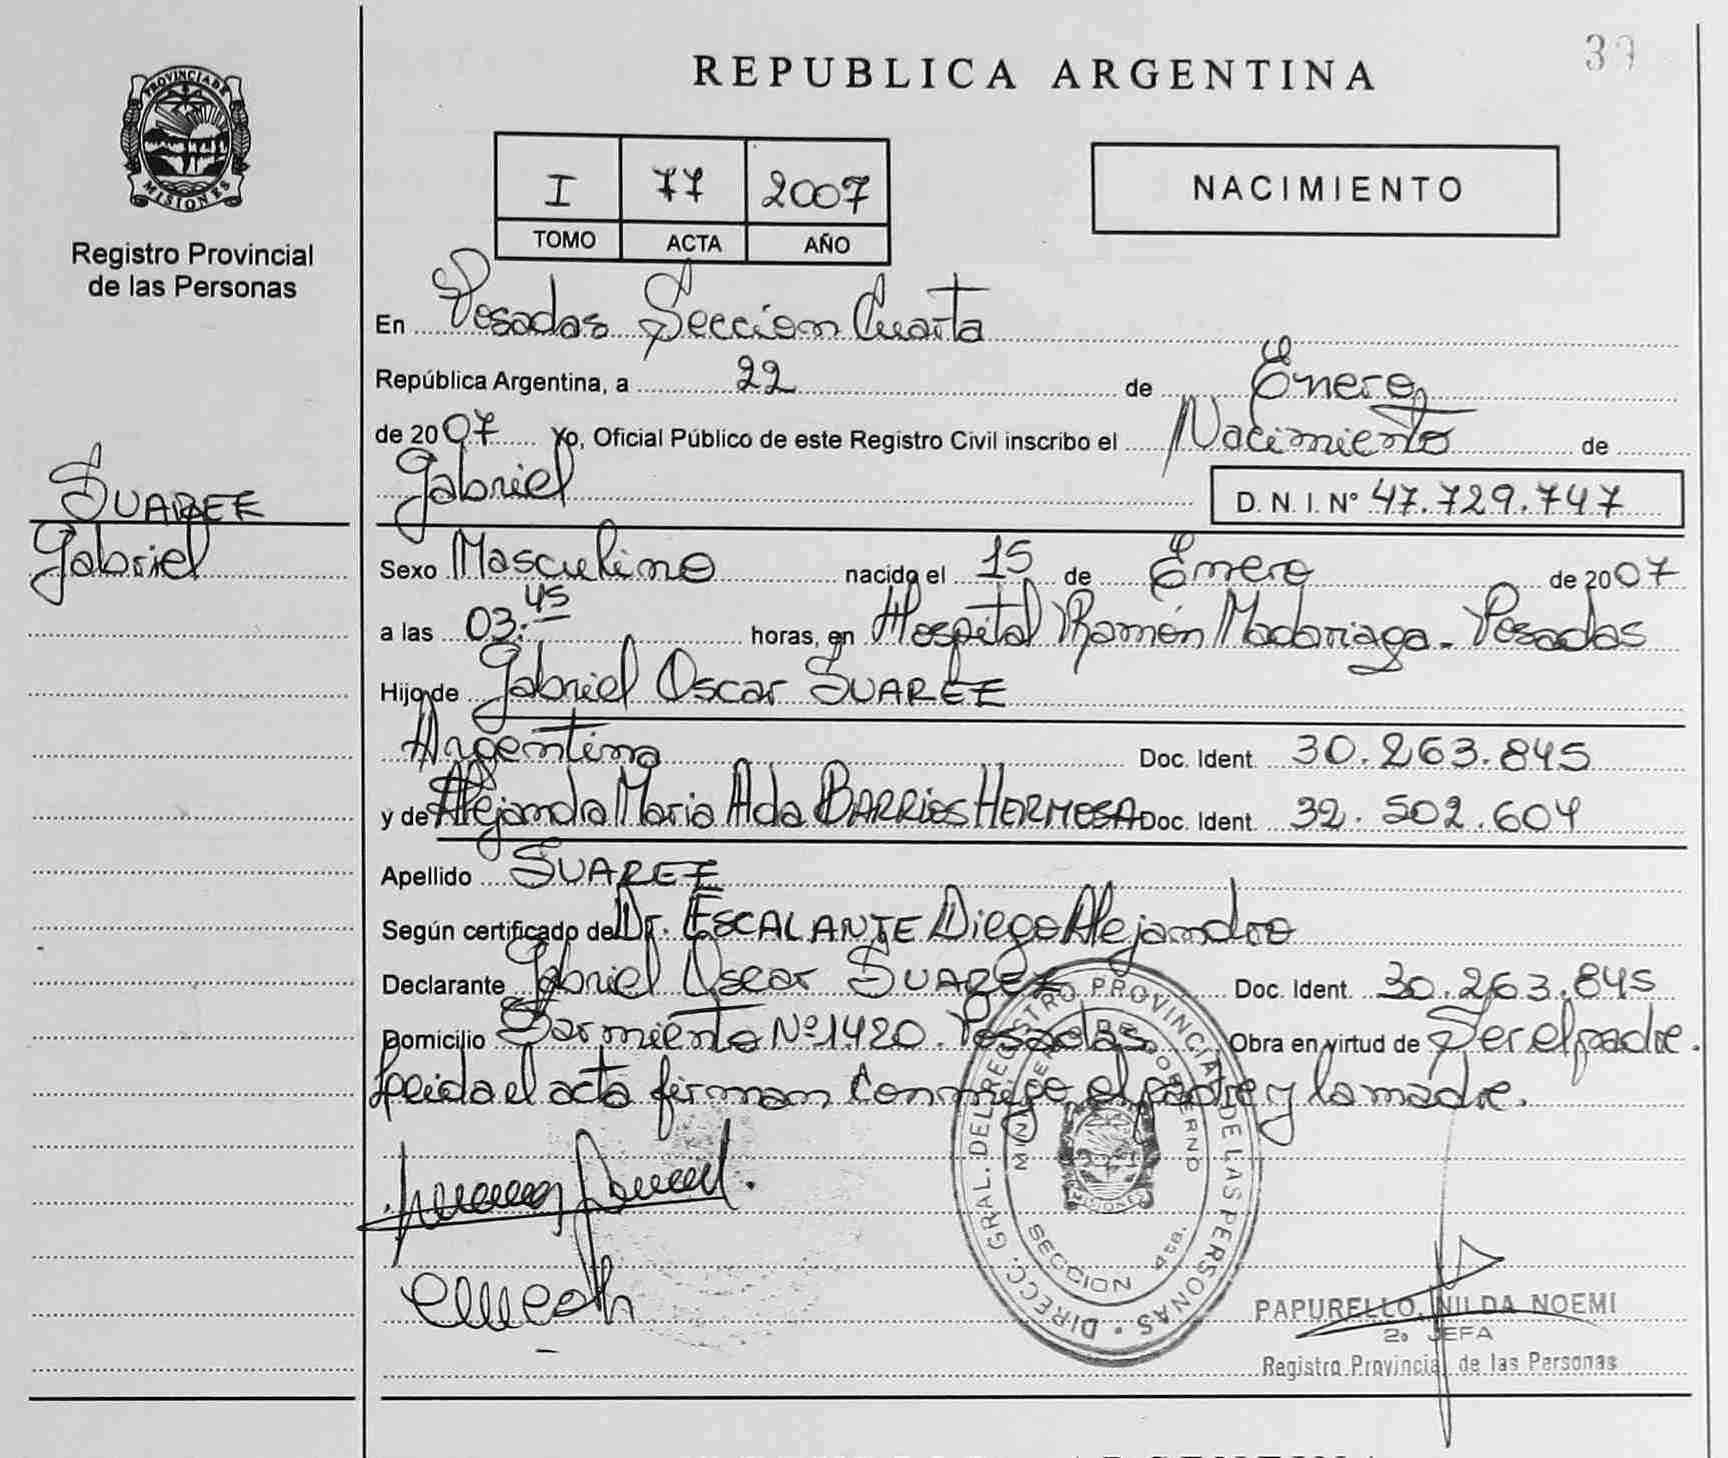 39
REPUBLICA ARGENTINA
PROVINCIA DE
MISIONES
Registro Provincial
de las Personas
I 77 2007
TOMO ACTA AÑO
NACIMIENTO
En Posadas Seccion Cuarta
República Argentina, a 22 de Enero
de 2007 Yo, Oficial Público de este Registro Civil inscribo el Nacimiento de
Gabriel D. N. I. Nº 47.729.747
SUAREZ
Gabriel
Sexo Masculino nacido el 15 de Enero de 2007
a las 03:45 horas, en Hospital Ramón Madariaga - Posadas
Hijo de Gabriel Oscar SUAREZ
Argentino Doc. Ident. 30.263.845
y de Alejandra Maria Ada BARRIOS HERMOSA Doc. Ident. 32.502.604
Apellido SUAREZ
Según certificado de Dr. ESCALANTE Diego Alejandro
Declarante Gabriel Oscar SUAREZ Doc. Ident. 30.263.845
Domicilio Sarmiento Nº 1420. Posadas. Obra en virtud de Ser el padre.
Leida el acta firman conmigo, el padre y la madre.
DIRECC. GRAL. DEL REGISTRO PROVINCIAL DE LAS PERSONAS
MINISTERIO DE GOBIERNO
MISIONES
SECCION 4ta.
PAPURELLO, NILDA NOEMI
2º JEFA
Registro Provincial de las Personas